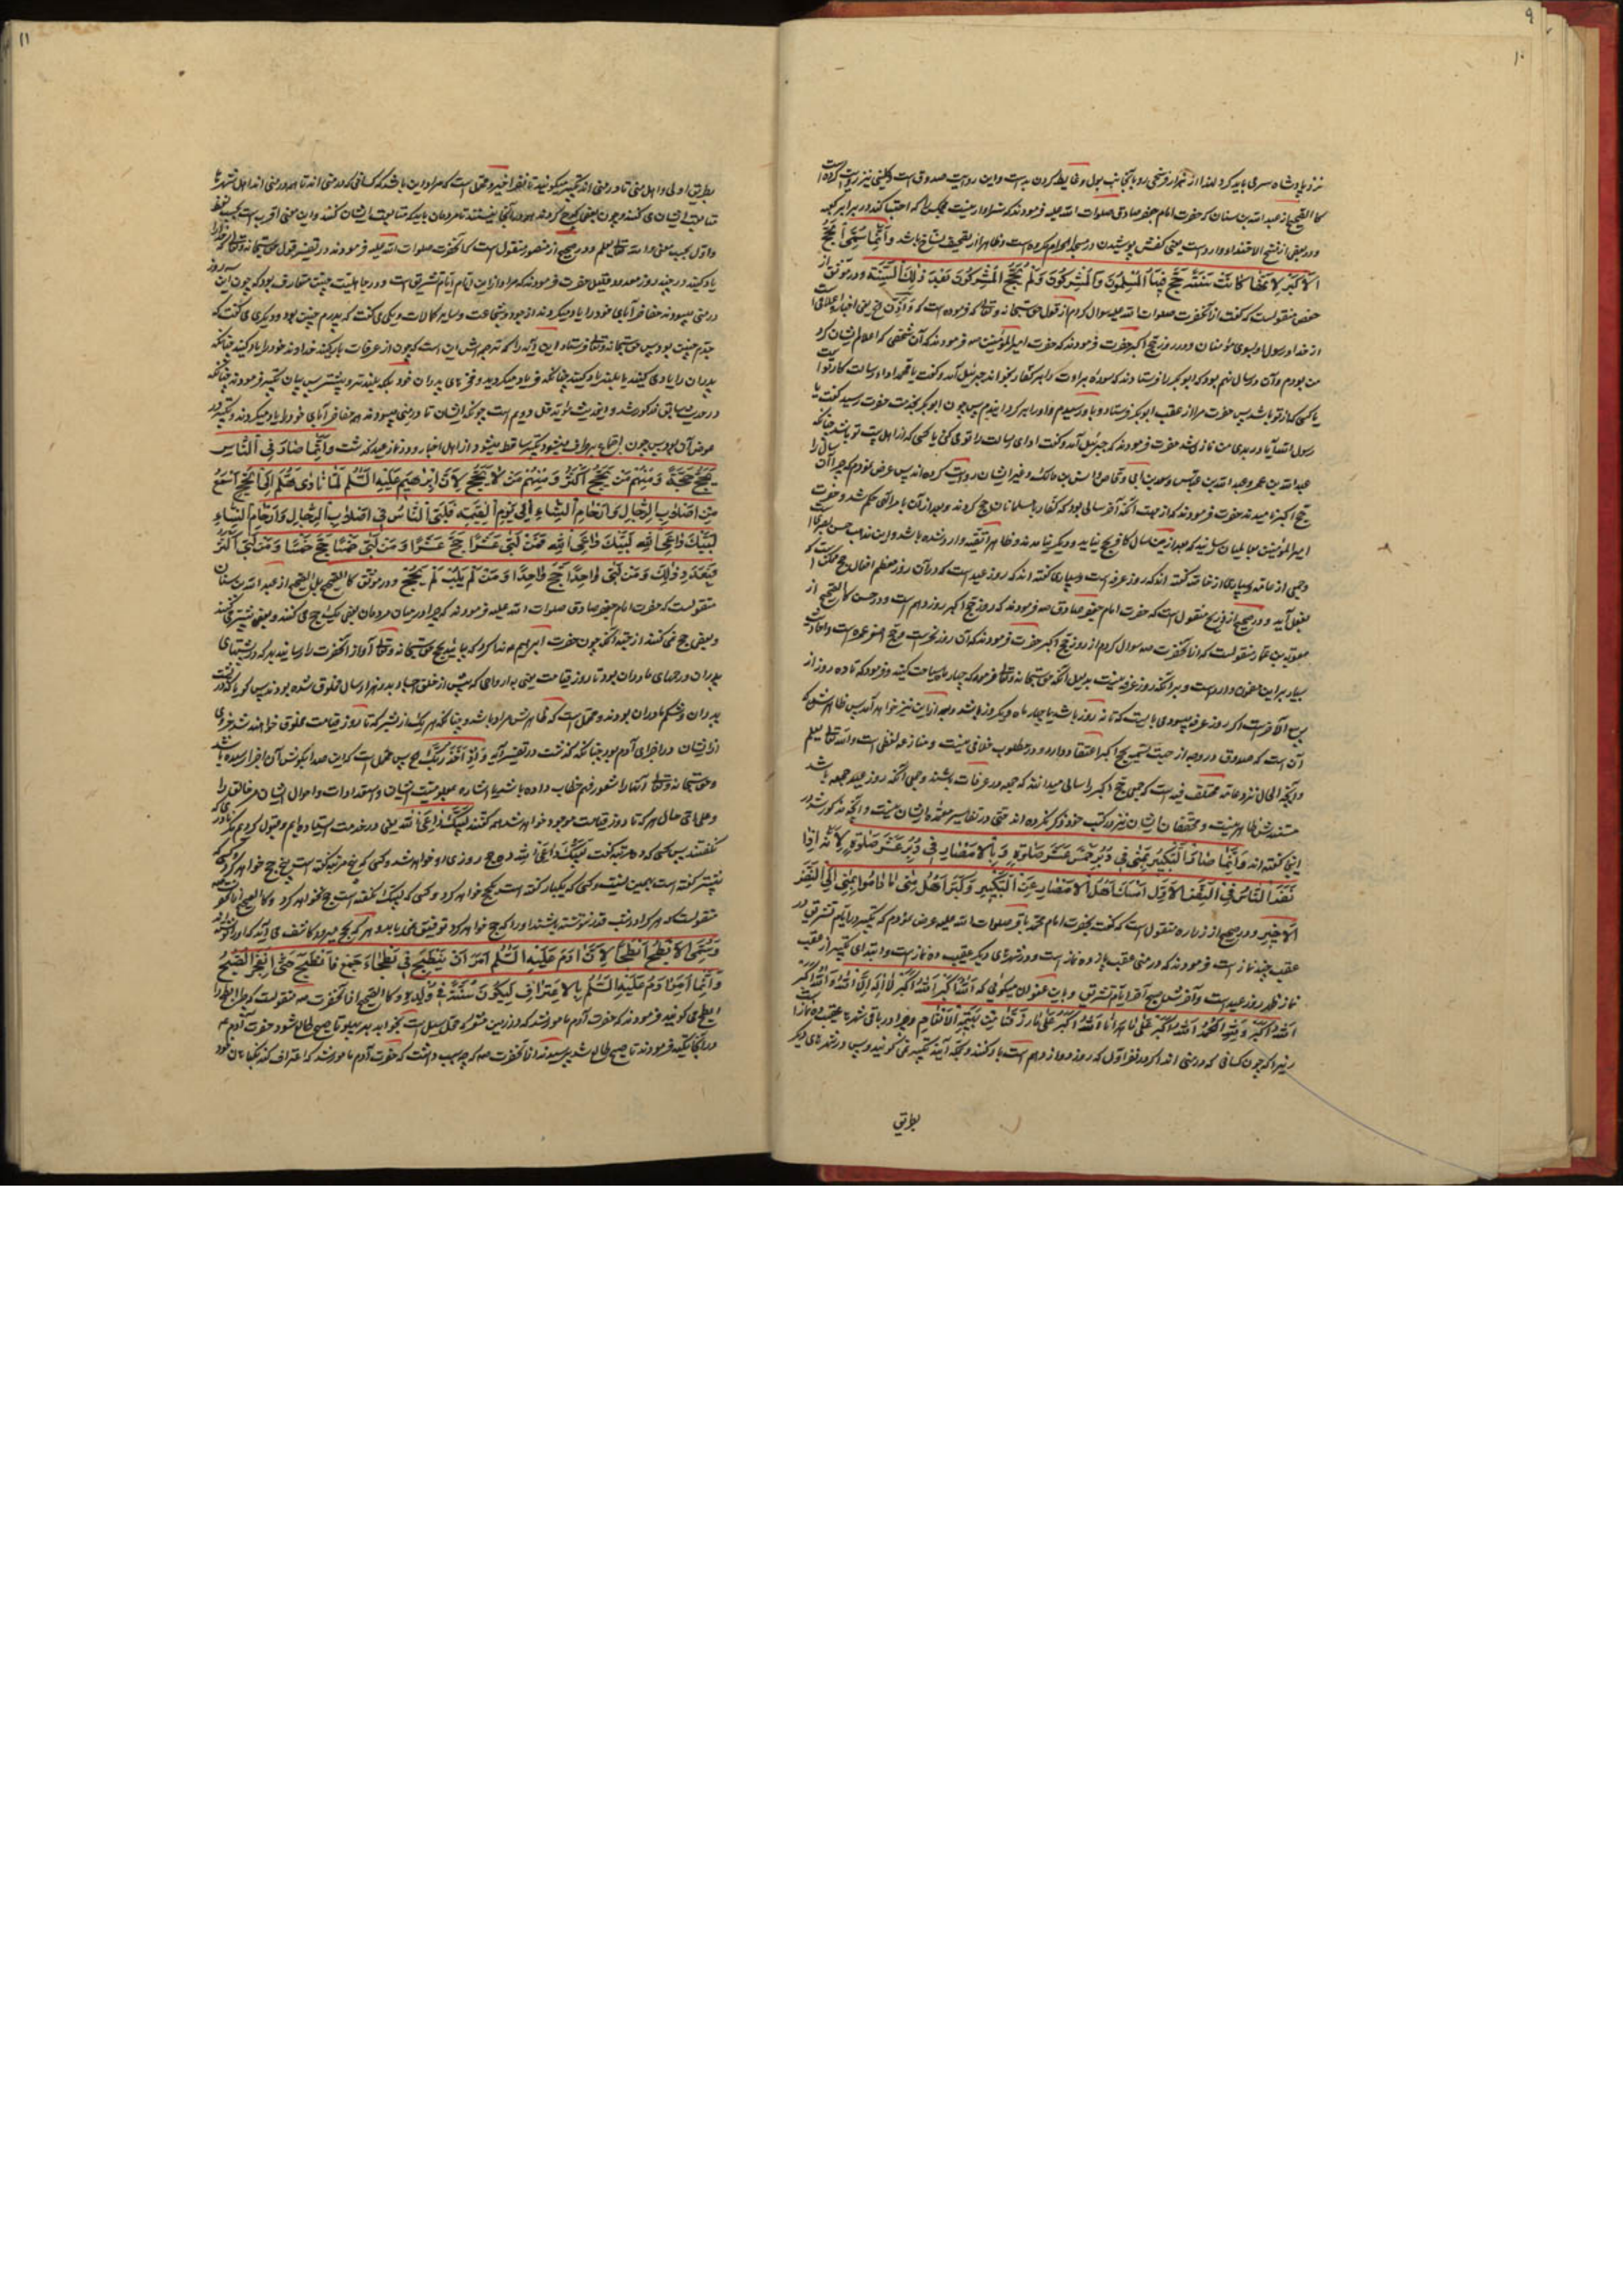 ۹
۱۰
نزد پادشاه سری باید کرد لهذا از نماز و تخلی رو بآنجانب بول و غایط کردن بد است و این روایت صدوق است و کلینی نیز روایت کرده است
کالصحیح از عبد الله بن سنان که حضرت امام جعفر صادق صلوات الله علیه فرمودند که سزاوار نیست کسی را که احتبا کند در برابر کعبه
و در بعضی از نسخ الاحتفاء وارد است یعنی کفش پوشیدن در مسجد الحرام مکروه است و ظاهرا از تصحیف نساخ باشد وَاِنَّما سُمِّیَ الْحَجُّ
الْاَکْبَرَ لِاَنَّها کانَتْ سَنَةً حَجَّ فیهَا الْمُسْلِمُونَ وَالْمُشْرِکُونَ وَلَمْ یَحُجَّ الْمُشْرِکُونَ بَعْدَ ذٰلِكَ السَّنَةِ و در موثق از
حفص منقولست که گفت از آنحضرت صلوات الله علیه سوال کردم از قول حق سبحانه و تعالی که فرموده است که وَاَذانٌ الخ یعنی اخبار و اعلامی است
از خدا و رسول او بسوی مؤمنان در روز حج اکبر حضرت فرمودند که حضرت امیر المؤمنین ص فرمودند که آن شخصی که اعلام ایشان کرد
من بودم و آن در سال نهم بود که ابو بکر را فرستادند که سوره براءت را بر کفار بخواند جبرئیل آمد و گفت یا محمد اداء رسالت کار تو است
یا کسی که از تو باشد پس حضرت مرا از عقب ابو بکر فرستاد و با و رسیدم و او را بر گردانیدم پس چون ابو بکر بخدمت حضرت رسید گفت یا
رسول الله آیا در بدی من نازل شد حضرت فرمودند که جبرئیل آمد و گفت ادای رسالت را تو می کنی یا کسی که از اهل بیت تو باشد چنانکه
عبد الله بن عمر و عبد الله بن عباس و سعد بن ابی وقاص و انس بن مالک و غیر ایشان روایت کرده اند پس عرض نمودم که چرا آن سال را
حج اکبر نامیدند حضرت فرمودند که از جهت آنکه آخر سالی بود که کفار با مسلمانان حج کردند و بعد از آن
امیر المؤمنین
و جمعی از عامه و بسیاری از خاصه گفته اند که روز عرفه است و بسیاری گفته اند که روز عید است که در آن روز معظم افعال حج
بفعل آید و در صحیح از ذریح منقول است که حضرت امام جعفر صادق ص فرمودند که روز حج اکبر روز دهم است و در حسن کالصحیح از
معویة بن عمار منقولست که از آنحضرت ص سوال کردم از روز حج اکبر حضرت فرمودند که آن روز نحر است و حج اصغر عمره است و احادیث
بسیار بر این مضمون وارد است و بر آنکه روز عرفه نیست بدلیل آنکه حق سبحانه و تعالی فرمود که چهار ماه سیاحت کنید و فرمود که تا ده روز از
ربیع الآخر است اگر روز عرفه میبود می بایست که تا نه روز باشد یا چهار ماه و یکروز باشد و بعد از این نیز خواهد آمد پس ظاهرش که
آن است که صدوق در وجه از جهت تسمیه حج اکبر اعتقاد دارد و در مطلوب خلافی نیست و منازعه لفظی است و الله تعالی یعلم
و آنچه الحال نزد عامه مختلف فیه است که جمعی حج اکبر را سالی میدانند که جمعه در عرفات باشند و جمعی آنکه روز عید جمعه باشد
مستندش ظاهر نیست و محققان ایشان نیز در کتب خود ذکر نکرده اند حتی در تفاسیر معتبره ایشان نیست و آنچه مذکور شد در
این گفته اند وَاِنَّما صارَ التَّکْبیرُ بِمِنیً فی دُبُرِ خَمْسَ عَشَرَ صَلوةٍ وَبِالْاَمْصارِ فی دُبُرِ عَشْرِ صَلَواتٍ لِاَنَّهُ اِذا
نَفَرَ النّاسُ فِی النَّفْرِ الْاَوَّلِ اَمْسَكَ اَهْلُ الْاَمْصارِ عَنِ التَّکْبیرِ وَکَبَّرَ اَهْلُ مِنیً ما دامُوا بِمِنیً اِلَی النَّفْرِ
الْاَخیرِ و در صحیح از زراره منقول است که گفت بحضرت امام محمد باقر صلوات الله علیه عرض نمودم که تکبیر در ایام تشریق در
عقب چند نماز است فرمودند که در منی عقب پانزده نماز است و در شهرهای دیگر عقب ده نماز است و ابتدای تکبیر از عقب
نماز ظهر روز عید است و آخرش صبح آخر ایام تشریق و باین عنوان میگوئی که اَللهُ اَکْبَرُ اَللهُ اَکْبَرُ لا اِلهَ اِلَّا اللهُ وَاللهُ اَکْبَرُ
اَللهُ اَکْبَرُ وَلِلّهِ الْحَمْدُ اَللهُ اَکْبَرُ عَلی ما هَدانا اَللهُ اَکْبَرُ عَلی ما رَزَقَنا مِنْ بَهیمَةِ الْاَنْعامِ و چرا در باقی شهرها عقب ده نماز است
زیرا که چون کسانی که در منی اند اگر در نفر اول که روز دوازدهم است بار کنند و بمکه آیند تکبیر نمی گویند پس در شهرهای دیگر
بطریق
۱۱
بطریق اولی و اهل منی تا در منی اند تکبیر میگویند تا نفر اخیر و محتمل است که مراد این باشد که کسانی که در منی اند تا در منی اند اهل شهرها
متابعت ایشان می کنند و چون بعضی کوچ کردند
و اول بحسب معنی و الله تعالی یعلم و در صحیح از منصور منقول است که آنحضرت صلوات الله علیه فرمودند در تفسیر قول حق سبحانه و تعالی که خدا را
یاد کنید در چند روز معدود قلیل حضرت فرمودند که مراد از این ایام ایام تشریق است و در جاهلیت چنین متعارف بود که چون این روز
در منی میبودند مفاخر آبای خود را یاد میکردند از جود و شجاعت و سایر کمالات و یکی می گفت که پدرم چنین بود و دیگری می گفت که
جدم چنین بود پس حق سبحانه و تعالی فرستاد این آیه را که ترجمه اش آن است که چون از عرفات بار کنید خداوند خود را یاد کنید چنانکه
پدران را یاد می کنید یا بلند یاد کنید چنانکه فریاد میکردید و فخرهای پدران خود بلکه بلندتر و بیشتر پس بیان تکبیر فرمودند چنانکه
در حدیث سابق مذکور شد و این حدیث مؤید محتمل دویم است چونکه ایشان تا در منی میبودند مفاخر آبای خود را یاد میکردند و تکبیر در
عوض آن بود پس چون اجتماع برطرف میشود تکبیر ساقط میشود از اهل امصار و وز نماز عید گذشت وَاِنَّما صارَ فِی النّاسِ
مَنْ یَحُجُّ حَجَّةً وَمِنْهُمْ مَنْ یَحُجُّ اَکْثَرَ وَمِنْهُمْ مَنْ لا یَحُجُّ لِاَنَّ اِبْرهیمَ عَلَیْهِ السَّلمُ لَمّا نادی هَلُمَّ اِلَی الْحَجِّ اَسْمَعَ
مَنْ فی اَصْلابِ الرِّجالِ وَاَرْحامِ النِّساءِ اِلی یَوْمِ الْقِیمَةِ فَلَبَّی النّاسُ فی اَصْلابِ الرِّجالِ وَاَرْحامِ النِّساءِ
لَبَّیْكَ داعِیَ اللهِ لَبَّیْكَ داعِیَ اللهِ فَمَنْ لَبّی عَشْرًا حَجَّ عَشْرًا وَمَنْ لَبّی خَمْسًا حَجَّ خَمْسًا وَمَنْ لَبّی اَکْثَرَ
فَبِعَدَدِ ذٰلِكَ وَمَنْ لَبّی واحِدًا حَجَّ واحِدًا وَمَنْ لَمْ یُلَبِّ لَمْ یَحُجَّ و در موثق کالصحیح بل الصحیح از عبد الله بن سنان
منقولست که حضرت امام جعفر صادق صلوات الله علیه فرمودند که چرا در میان مردمان بعضی یک حج می کنند و بعضی بیشتر می کنند
و بعضی حج نمی کنند از جهت آنکه چون حضرت ابراهیم ص ندا کرد که بیائید بحج حق سبحانه و تعالی آواز آنحضرت را رسانید بهر که در پشتهای
پدران و رحمهای مادران بود تا روز قیامت یعنی به ارواحی که پیش از خلق اجساد بدو هزار سال مخلوق شده بودند پس گویا که در
پدران و شکم مادران بودند و محتمل است که ظاهرش مراد باشد و چنانکه هر یک از بشر که تا روز قیامت مخلوق خواهند شد جزوی
از ایشان در اجزای آدم بود چنانکه گذشت در تفسیر آیه وَاِذْ اَخَذَ رَبُّكَ الخ پس محتمل است که این صدا بگوش آن اجزا رسیده باشد
و حق سبحانه و تعالی آنها را شعور فهم خطاب داده باشد یا اشاره
و علی ای حال هر که تا روز قیامت موجود خواهد شد همه گفتند لَبَّیْكَ داعِیَ الله یعنی در خدمت ایستاده ایم و قبول کردیم مگر
نگفتند پس کسی که ده مرتبه گفت لَبَّیْكَ داعِیَ الله ده حج روزی او خواهد شد و کسی که پنج مرتبه گفته است پنج حج خواهد کرد و کسی که
بیشتر گفته است بهمین نسبت و کسی که یکبار گفته است یکحج خواهد کرد و کسی که لبیک نگفته است حج نخواهد کرد و کالصحیح از آنحضرت
منقولست که هر که را در شب قدر نوشته باشند او را که حج خواهد کرد توفیق می یابد
وَسُمِّیَ الْاَبْطَحُ اَبْطَحًا لِاَنَّ ادَمَ عَلَیْهِ السَّلمُ اُمِرَ اَنْ یَنْبَطِحَ فی بَطْحاءِ جَمْعٍ فَانْبَطَحَ حَتّی انْفَجَرَ الصُّبْحُ
وَاِنَّما اُمِرَ ادَمُ عَلَیْهِ السَّلمُ بِالْاِعْتِرافِ لِیَکُونَ سُنَّةً فی وُلْدِهِ و کالصحیح از آنحضرت ص منقولست که چرا ابطح را
ابطح می گویند فرمودند که حضرت آدم مامور شد که در زمین مشعر که محل سیل است بخوابد بهر پهلو تا صبح طالع شود حضرت آدم ع
در آنجا تکیه فرمودند تا صبح طالع شد پرسیدند از آنحضرت ص که چه سبب داشت که حضرت آدم مامور شد که اعتراف کند بگناهان خود